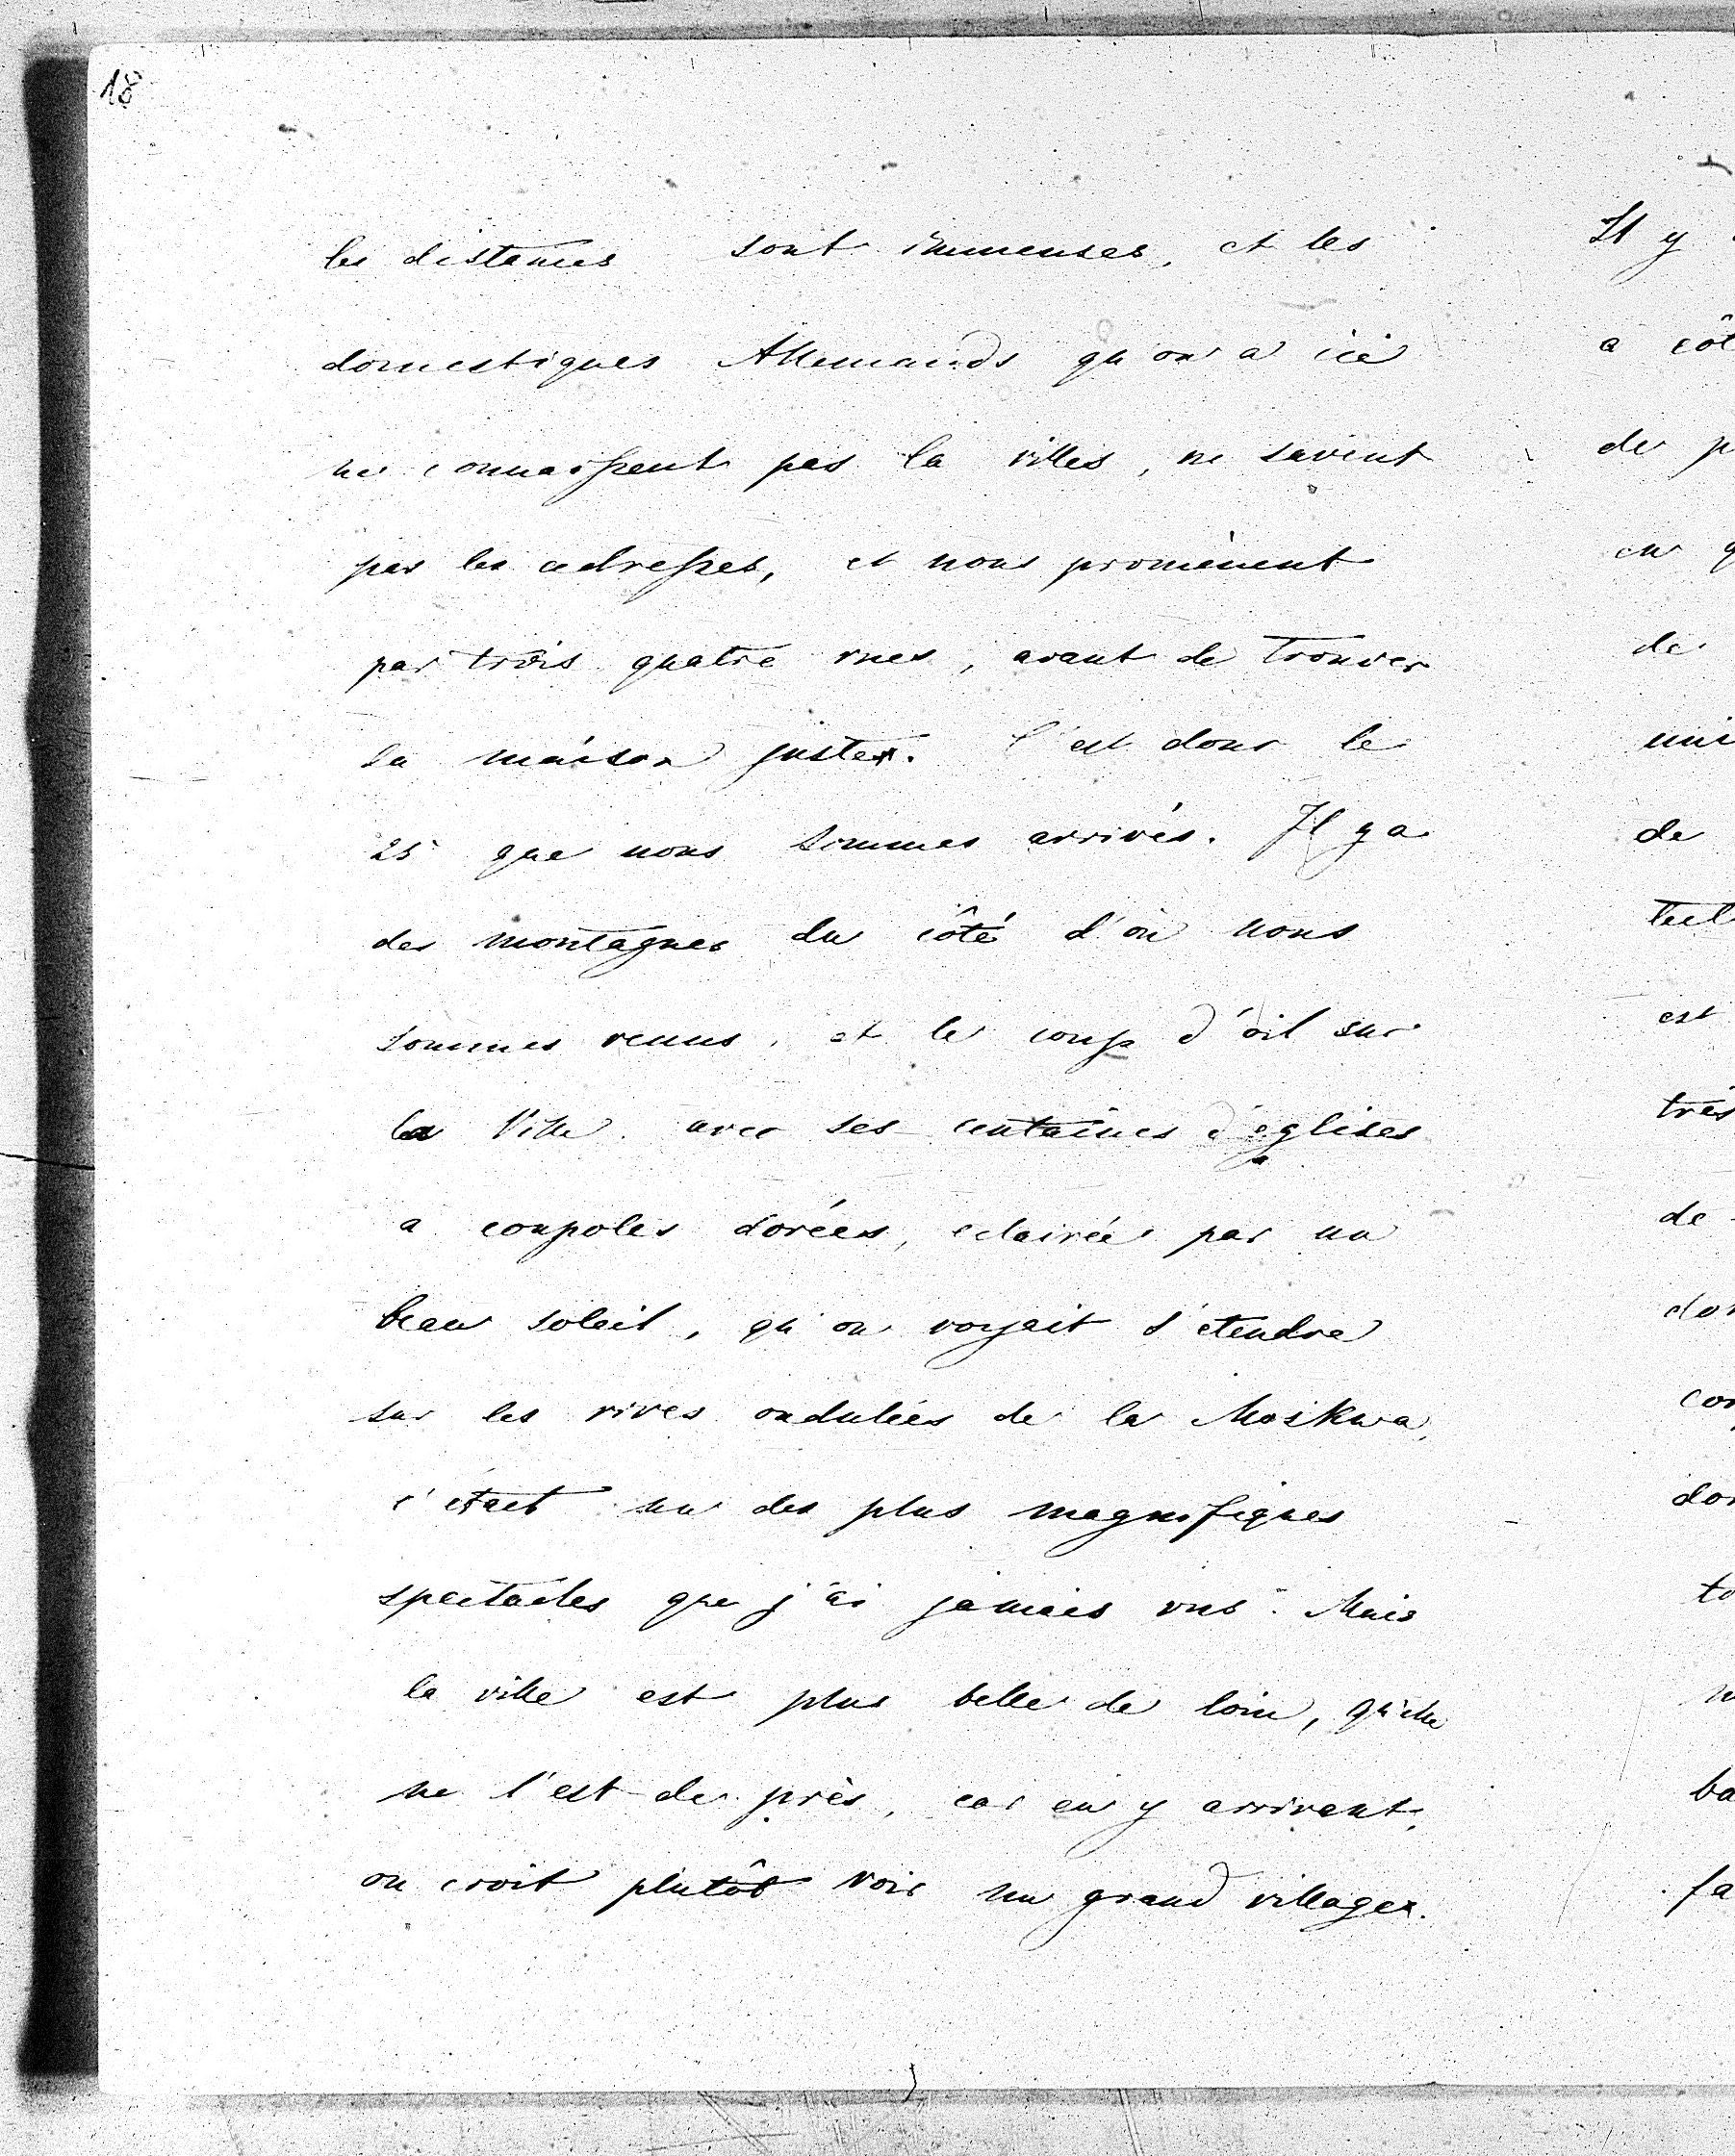 18
les distances sont immenses, et les
domestiques Allemands qu'on a ici
ne connaissent pas la villes, ne savent
pas les adresses, et nous promènent
par trois quatre rues, avant de trouver
la maison juste.
C'est donc le
25 que nous sommes arrivés. Il y a
des montagnes du côté d'où nous
sommes venus, et le coup d'oil sur
la Ville avec ses centaines d'eglises
a coupoles dorées, eclairée par un
beau soleil, qu'on voyait s'etendre
sur les rives ondulées de la Moskwa,
c'était un des plus magnifiques
spectacles que j'ai jamais vus. Mais
la ville est plus belle de loin, qu'elle
ne l'est de près, car en y arrivant,
on croit plutôt voir un grand village.
Il y
a côt
de p
en q
de
uni
de
tul
est
très
de
dor
con
don
to
ba
fa